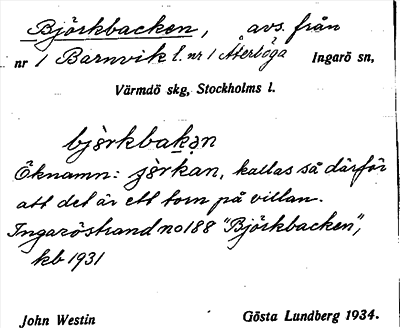 Björkbacken, avs. från
nr 1 Barnvik l. nr 1 Återböga Ingarö sn,
Värmdö skg, Stockholms l.
bjə̀rkbakən
Öknamn: jə̀rkan, kallas så därför
att det är ett torn på villan.
Ingaröstrand no 188 "Björkbacken",
kb 1931
John Westin Gösta Lundberg 1934.